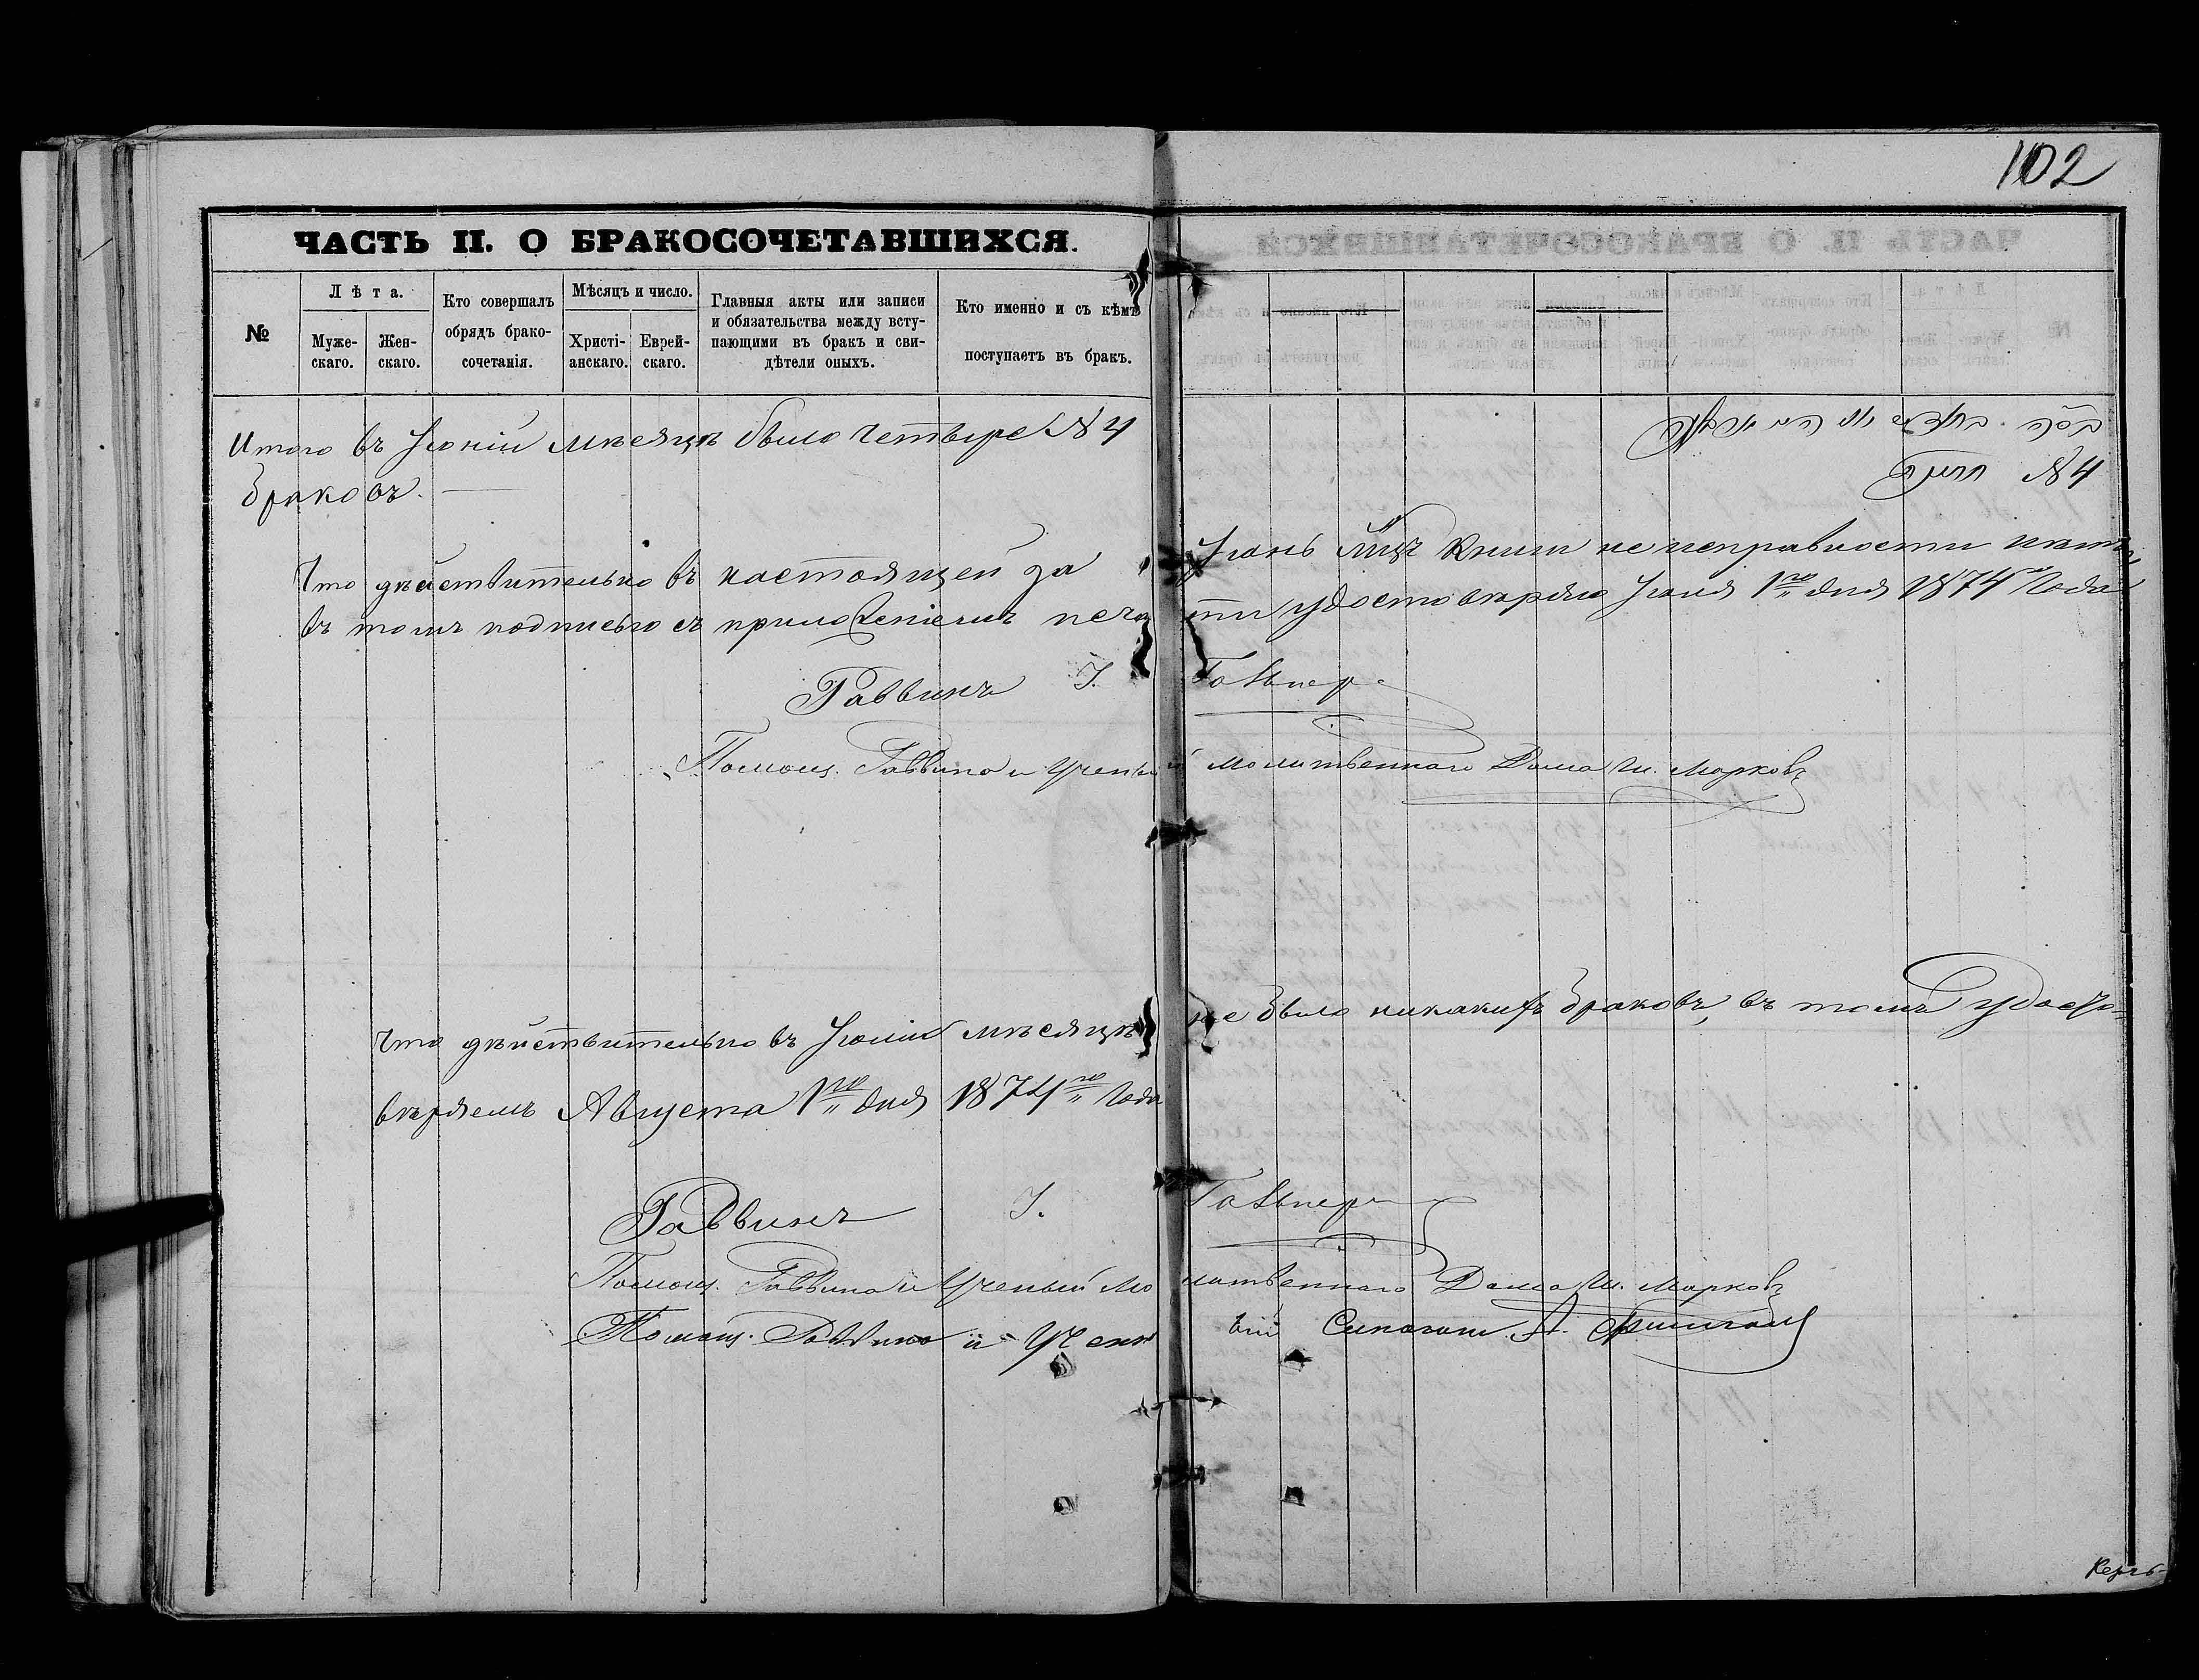 102
ЧАСТЬ II. О БРАКОСОЧЕТАВШИХСЯ.
№
Лѣта.
Муже-
скаго.
Жен-
скаго.
Кто совершалъ
обрядъ брако-
сочетанія.
Мѣсяцъ и число.
Христі-
анскаго.
Еврей-
скаго.
Главныя акты или записи
и обязательства между всту-
пающими въ бракъ и сви-
дѣтели оныхъ.
Кто именно и съ кѣмъ
поступаетъ въ бракъ.
Итого въ Іюніи мѣсяцѣ было четыре № 4
браковъ.
№ 4
Что дѣйствительно въ настоящей за Іюнь книги не исправности
въ томъ подписью съ приложеніемъ печати удостовѣряю Іюля 1го дня 1874 Года
Раввинъ І.
Помощ. Раввина и Ученый молитвеннаго Дома Ш. Марковъ
Что дѣйствительно въ Іюлии мѣсяцѣ не было никакихъ браковъ, въ томъ удосто-
вѣряемъ Августа 1го дня 1874го Года
Раввинъ І.
Помощ. Раввина и Ученый Молитвеннаго Дома Ш. Марковъ
Помощ. Раввина и Учены А.